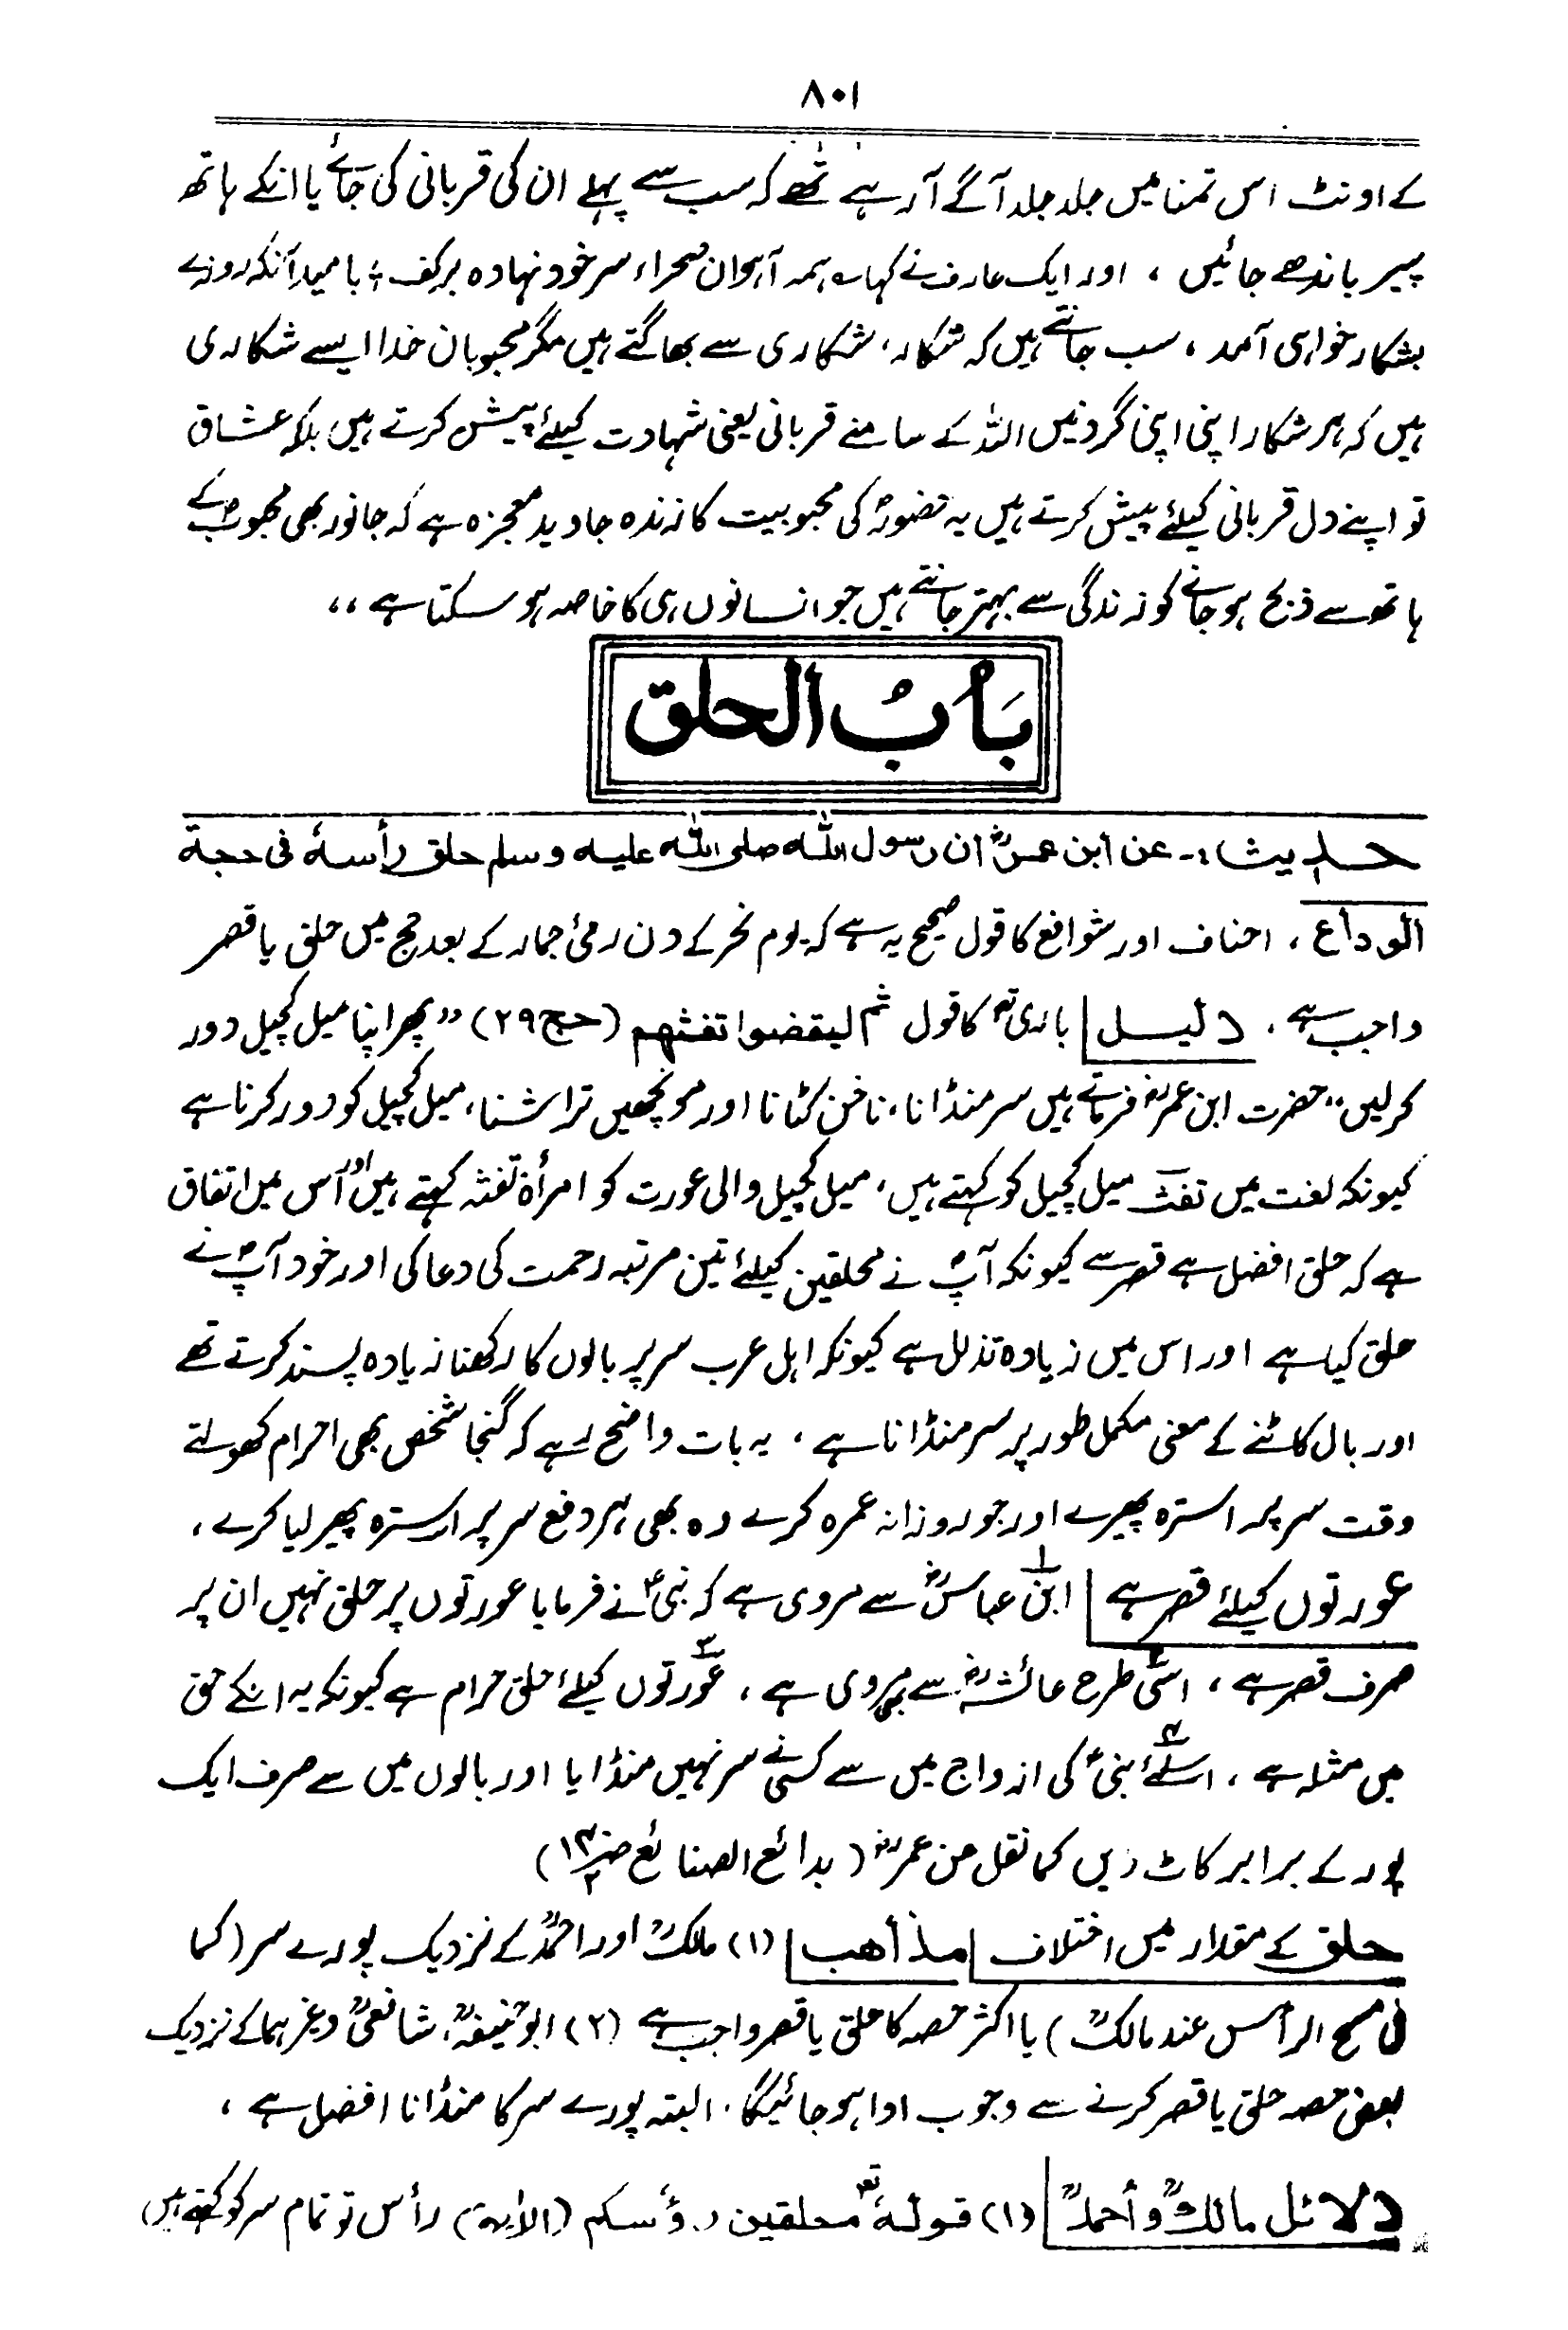 ۸۰۱
کے اونٹ اس تمنا میں جلد جلد آگے آرہے تھے کہ سب سے پہلے ان کی قربانی کی جائے یا انکے ہاتھ
پیر باندھے جائیں ، اور ایک عارف نے کہا ؎ ہمہ آہوان صحراء سر خود نہادہ برکف ؛ بامید آنکہ روزے
بشکار خواہی آمد ، سب جانتے ہیں کہ شکار ، شکاری سے بھاگتے ہیں مگر محبوبان خدا ایسے شکاری
ہیں کہ ہر شکار اپنی اپنی گردنیں اللہ کے سامنے قربانی یعنی شہادت کیلئے پیش کرتے ہیں بلکہ عشاق
تو اپنے دل قربانی کیلئے پیش کرتے ہیں یہ حضورؐ کی محبوبیت کا زندہ جاوید معجزہ ہے کہ جانور بھی محبوبؐ کے
ہاتھ سے ذبح ہو جانے کو زندگی سے بہتر جانتے ہیں جو انسانوں ہی کا خاصہ ہو سکتا ہے ،،
بَابُ الحلق
حدیث :۔ عن ابن عمرؓ ان رسول اللہ صلی اللہ علیہ وسلم حلق رأسہٗ فی حجۃ
الوداع ، احناف اور شوافع کا قول صحیح یہ ہے کہ یوم نحر کے دن رمیٔ جمار کے بعد حج میں حلق یا قصر
واجب ہے ، دلیل باری تعؔ کا قول ثم لیقضوا تفثھم (حج ۲۹) ,,پھر اپنا میل کچیل دور
کرلیں،، حضرت ابن عمرؓ فرماتے ہیں سر منڈانا ، ناخن کٹانا اور مونچھیں تراشنا ، میل کچیل کو دور کرنا ہے
کیونکہ لغت میں تفث میل کچیل کو کہتے ہیں ، میل کچیل والی عورت کو امرأۃ تفثہ کہتے ہیں اور اس میں اتفاق
ہے کہ حلق افضل ہے قصر سے کیونکہ آپؐ نے محلقین کیلئے تین مرتبہ رحمت کی دعا کی اور خود آپؐ نے
حلق کیا ہے اور اس میں زیادہ تذلل ہے کیونکہ اہل عرب سر پر بالوں کا رکھنا زیادہ پسند کرتے تھے
اور بال کاٹنے کے معنی مکمل طور پر سر منڈانا ہے ، یہ بات واضح رہے کہ گنجا شخص بھی احرام کھولتے
وقت سر پر استرہ پھیرے اور جو روزانہ عمرہ کرے وہ بھی ہر دفع سر پر استرہ پھیر لیا کرے ،
عورتوں کیلئے قصر ہے ۱ ابن عباسؓ سے مروی ہے کہ نبیؐ نے فرمایا عورتوں پر حلق نہیں ان پر
صرف قصر ہے ، ۲ اسی طرح عائشہؓ سے مروی ہے ، ۳ عورتوں کیلئے حلق حرام ہے کیونکہ یہ انکے حق
میں مثلہ ہے ، ۴ اسلئے نبیؐ کی ازواج میں سے کسی نے سر نہیں منڈایا اور بالوں میں سے صرف ایک
پور کے برابر کاٹ دیں کما نقل عن عمرؓ ( بدائع الصنائع )
حلق کے مقدار میں اختلاف مذاھب (۱) مالکؒ اور احمدؒ کے نزدیک پورے سر (کما
فی مسح الرأس عند مالکؒ ) یا اکثر حصہ کا حلق یا قصر واجب ہے (۲) ابو حنیفہؒ ، شافعیؒ وغیرہما کے نزدیک
بعض حصہ حلق یا قصر کرنے سے وجوب ادا ہو جائیگا ، البتہ پورے سر کا منڈانا افضل ہے ،
دلائل مالکؒ وأحمدؒ (۱) قولہٗ تعؔ محلقین رؤسکم (الاٰیۃ) رأس تو تمام سر کو کہتے ہیں